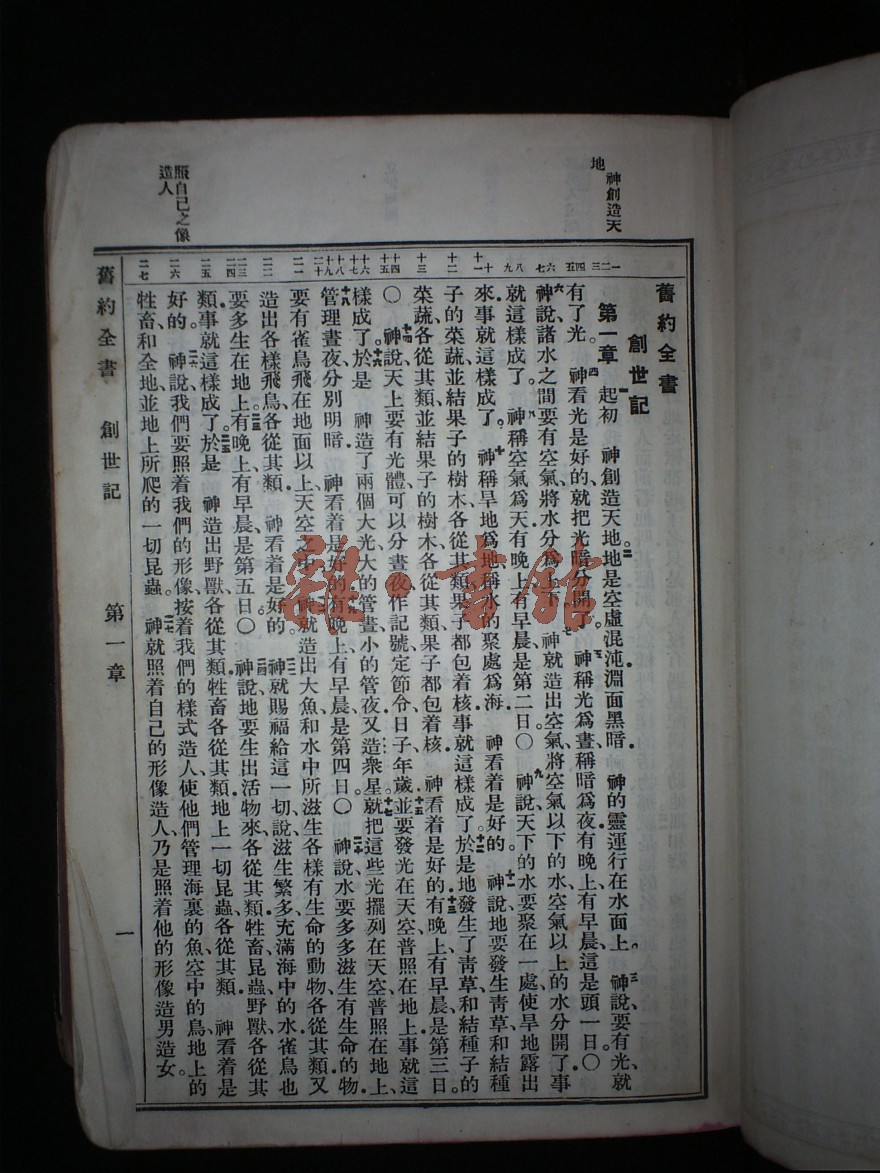 神創造天
地
照自己之像
造人
一二三 四五 六七 八九 十 十一 十二 十三 十四 十五 十六 十七 十八 十九 二十 二一 二二 二三 二四 二五 二六 二七
舊約全書
創世記
第一章 一起初 神創造天地。二地是空虛混沌淵面黑暗. 神的靈運行在水面上。 三神說、要有光、就
有了光。四神看光是好的、就把光暗分開了。五神稱光爲晝、稱暗爲夜.有晚上、有早晨、這是頭一日。〇
六神說、諸水之間要有空氣、將水分爲上下。七神就造出空氣、將空氣以下的水、空氣以上的水分開了.事
就這樣成了。八神稱空氣爲天.有晚上、有早晨、是第二日。〇 九神說、天下的水要聚在一處、使旱地露出
來.事就這樣成了。十神稱旱地爲地、稱水的聚處爲海. 神看着是好的。十一神說、地要發生青草、和結種
子的菜蔬、並結果子的樹木、各從其類、果子都包着核.事就這樣成了。十二於是地發生了青草、和結種子的
菜蔬、各從其類、並結果子的樹木、各從其類、果子都包着核. 神看着是好的。十三有晚上、有早晨、是第三日。
〇 十四神說、天上要有光體、可以分晝夜、作記號、定節令、日子、年歲.十五並要發光在天空、普照在地上.事就這
樣成了。十六於是 神造了兩個大光、大的管晝、小的管夜.又造衆星。十七就把這些光擺列在天空、普照在地上、
十八管理晝夜、分別明暗. 神看着是好的。十九有晚上、有早晨、是第四日。〇 二十神說、水要多多滋生有生命的物.
要有雀鳥飛在地面以上、天空之中。二一神就造出大魚、和水中所滋生各樣有生命的動物、各從其類.又
造出各樣飛鳥、各從其類. 神看着是好的。二二神就賜福給這一切、說、滋生繁多、充滿海中的水.雀鳥也
要多生在地上。二三有晚上、有早晨、是第五日。〇 二四神說、地要生出活物來、各從其類.牲畜、昆蟲、野獸、各從其
類.事就這樣成了。二五於是 神造出野獸、各從其類.牲畜、各從其類.地上一切昆蟲、各從其類. 神看着是
好的。二六神說、我們要照着我們的形像、按着我們的樣式造人、使他們管理海裏的魚、空中的鳥、地上的
牲畜、和全地、並地上所爬的一切昆蟲。二七神就照着自己的形像造人、乃是照着他的形像造男造女。
舊約全書 創世記 第一章 一
雜·書館